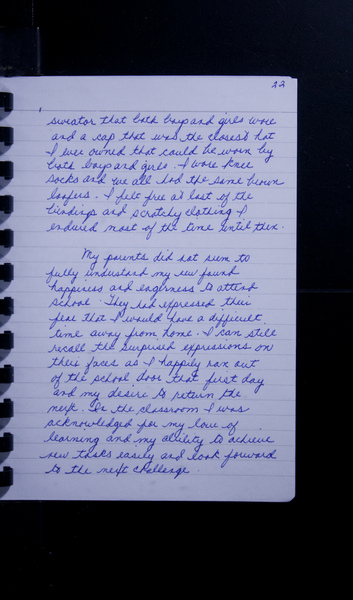 22
sweator that both boys and girls wore
and a cap that was the closest hat
I ever owned that could be worn by
both boys and girls. I wore knee
socks and we all had the same brown
loafers. I felt free at last of the
bindings and scratchy clothing I
endured most of the time until then.
My parents did not seem to
fully understand my new found
happiness and eagerness to attend
school. They had expressed their
fear that I would have a difficult
time away from home. I can still
recall the surprised expressions on
their faces as I happily ran out
of the school door that first day
and my desire to return the
next. In the classroom I was
acknowledged for my love of
learning and my ability to achieve
new tasks easily and look forward
to the next challenge.